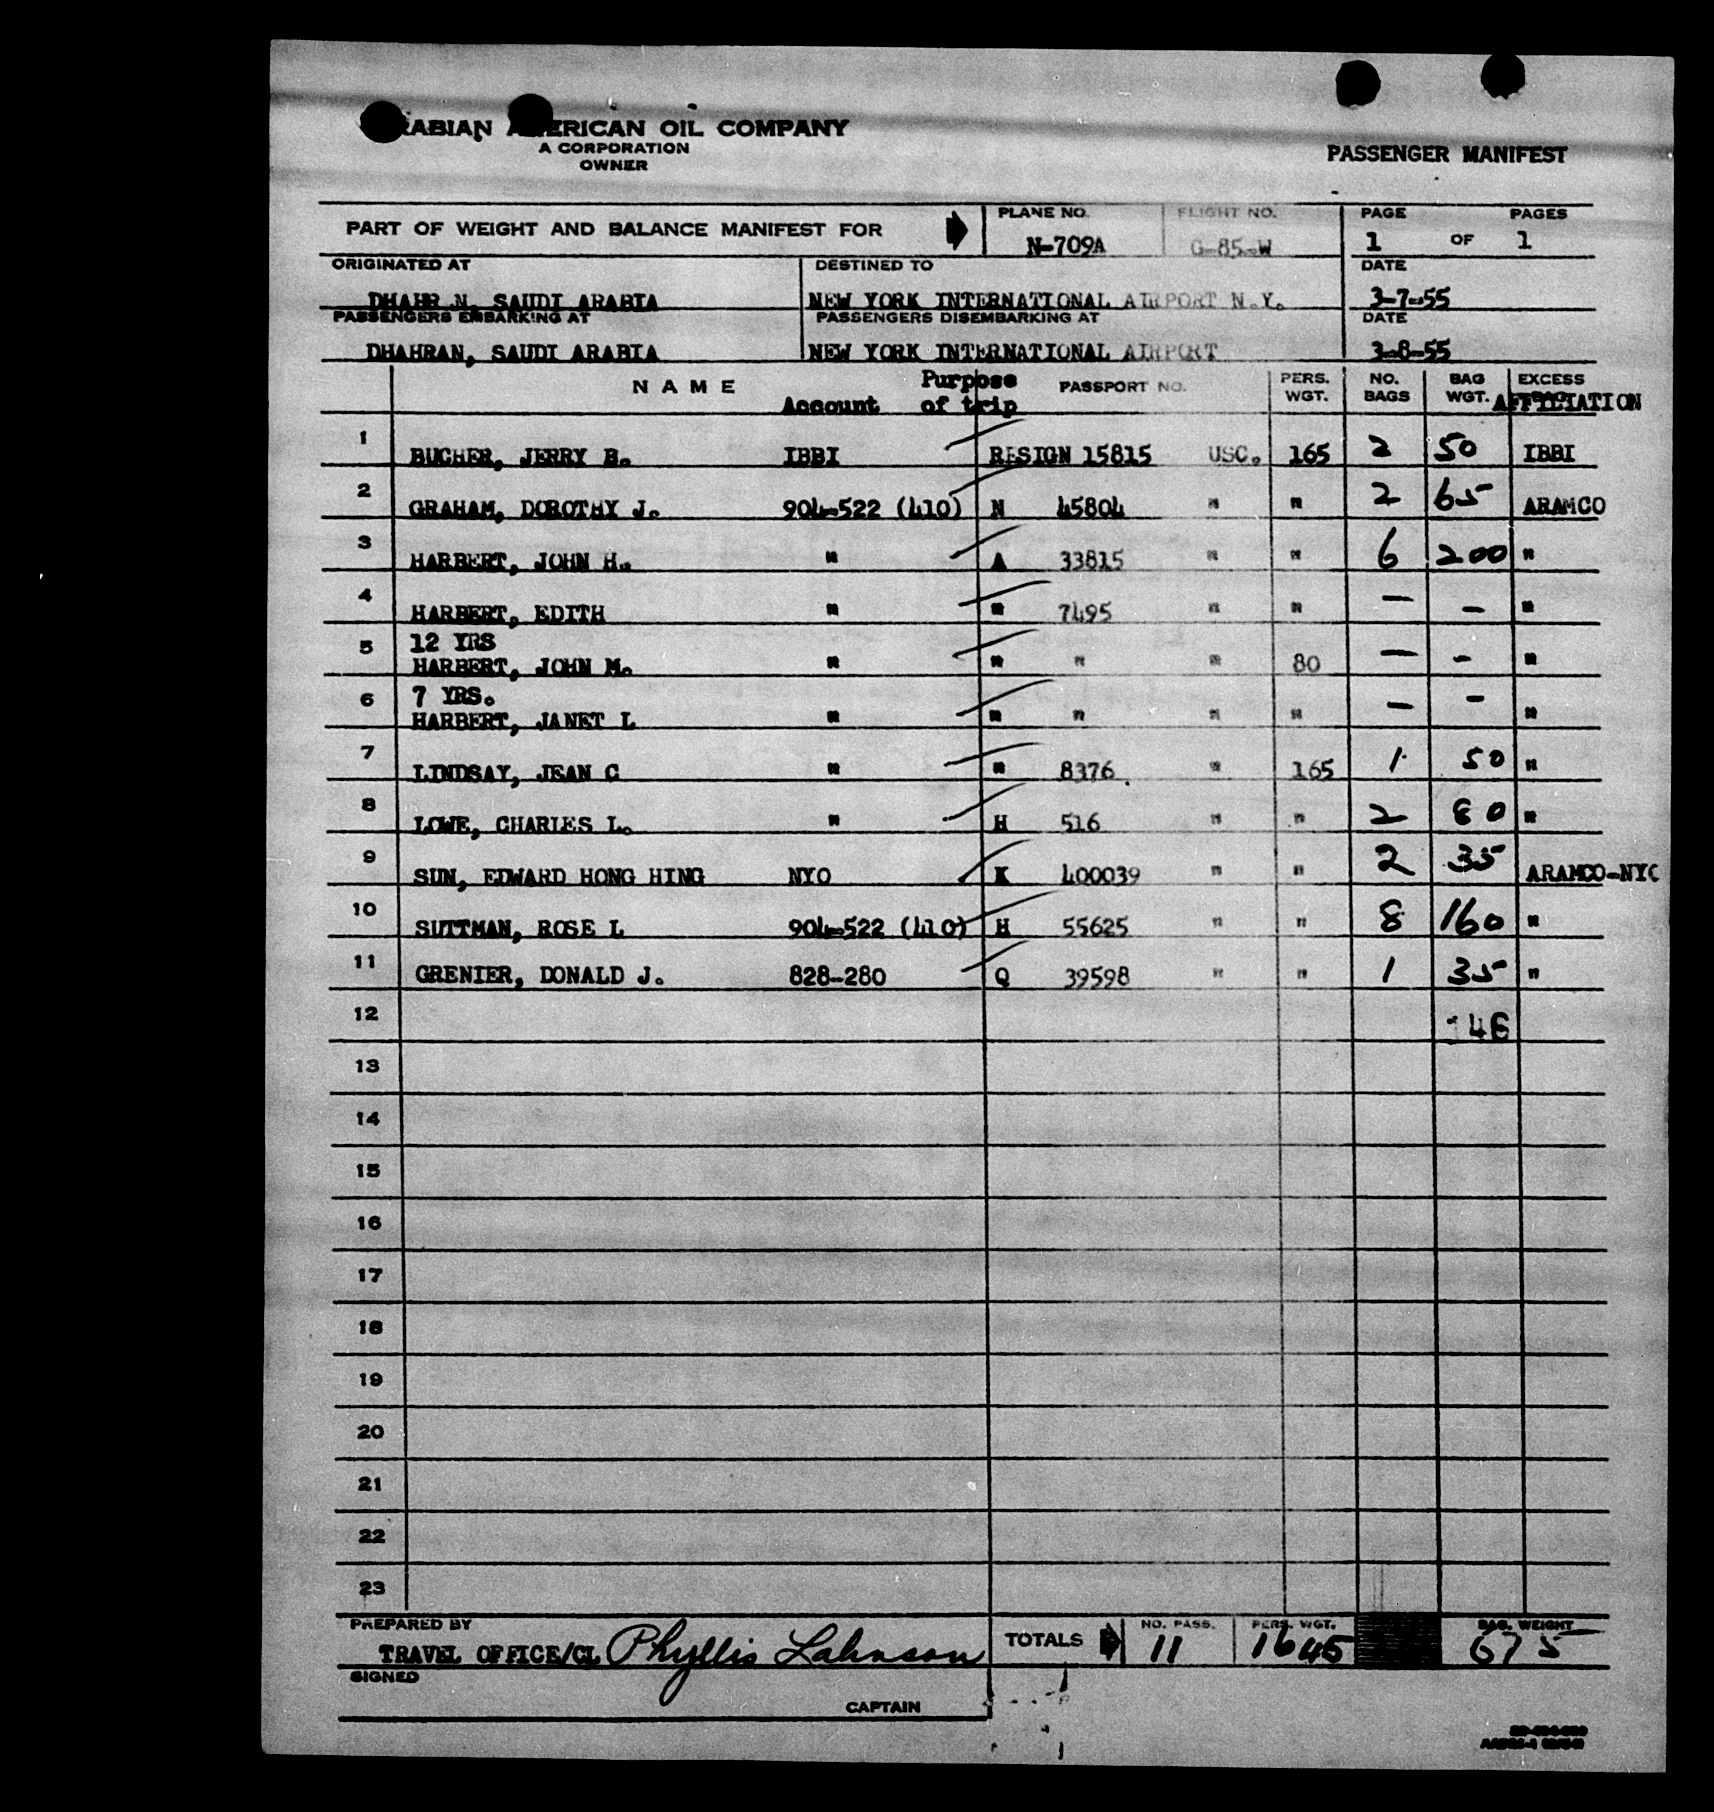 RABIAN AMERICAN OIL COMPANY
A CORPORATION
OWNER
PASSENGER MANIFEST
PART OF WEIGHT AND BALANCE MANIFEST FOR
PLANE NO. FLIGHT NO. PAGE PAGES
N-709A G-85-W 1 OF 1
ORIGINATED AT DESTINED TO DATE
DHAHR N, SAUDI ARABIA NEW YORK INTERNATIONAL AIRPORT N.Y. 3-7-55
PASSENGERS EMBARKING AT PASSENGERS DISEMBARKING AT DATE
DHAHRAN, SAUDI ARABIA NEW YORK INTERNATIONAL AIRPORT 3-8-55
NAME Account Purpose of trip PASSPORT NO. PERS. WGT. NO. BAGS BAG WGT. EXCESS AFFILIATION
1 BUCHER, JERRY B. IBBI RESIGN 15815 USC. 165 2 50 IBBI
2 GRAHAM, DOROTHY J. 904-522 (410) N 45804 " " 2 65 ARAMCO
3 HARBERT, JOHN H. " A 33815 " " 6 200 "
4 HARBERT, EDITH " " 7495 " " — — "
12 YRS
5 HARBERT, JOHN M. " " " " 80 — — "
7 YRS.
6 HARBERT, JANET L " " " " " — — "
7 LINDSAY, JEAN C " " 8376 " 165 1 50 "
8 LOWE, CHARLES L. " H 516 " " 2 80 "
9 SUN, EDWARD HONG HING NYO K 400039 " " 2 35 ARAMCO-NYC
10 SUTTMAN, ROSE L 904-522 (410) H 55625 " " 8 160 "
11 GRENIER, DONALD J. 828-280 Q 39598 " " 1 35 "
12
13
14
15
16
17
18
19
20
21
22
23
PREPARED BY TOTALS NO. PASS. PERS. WGT. BAG. WEIGHT
TRAVEL OFFICE/CL Phyllis Lahnson 11 1645 675
SIGNED
CAPTAIN